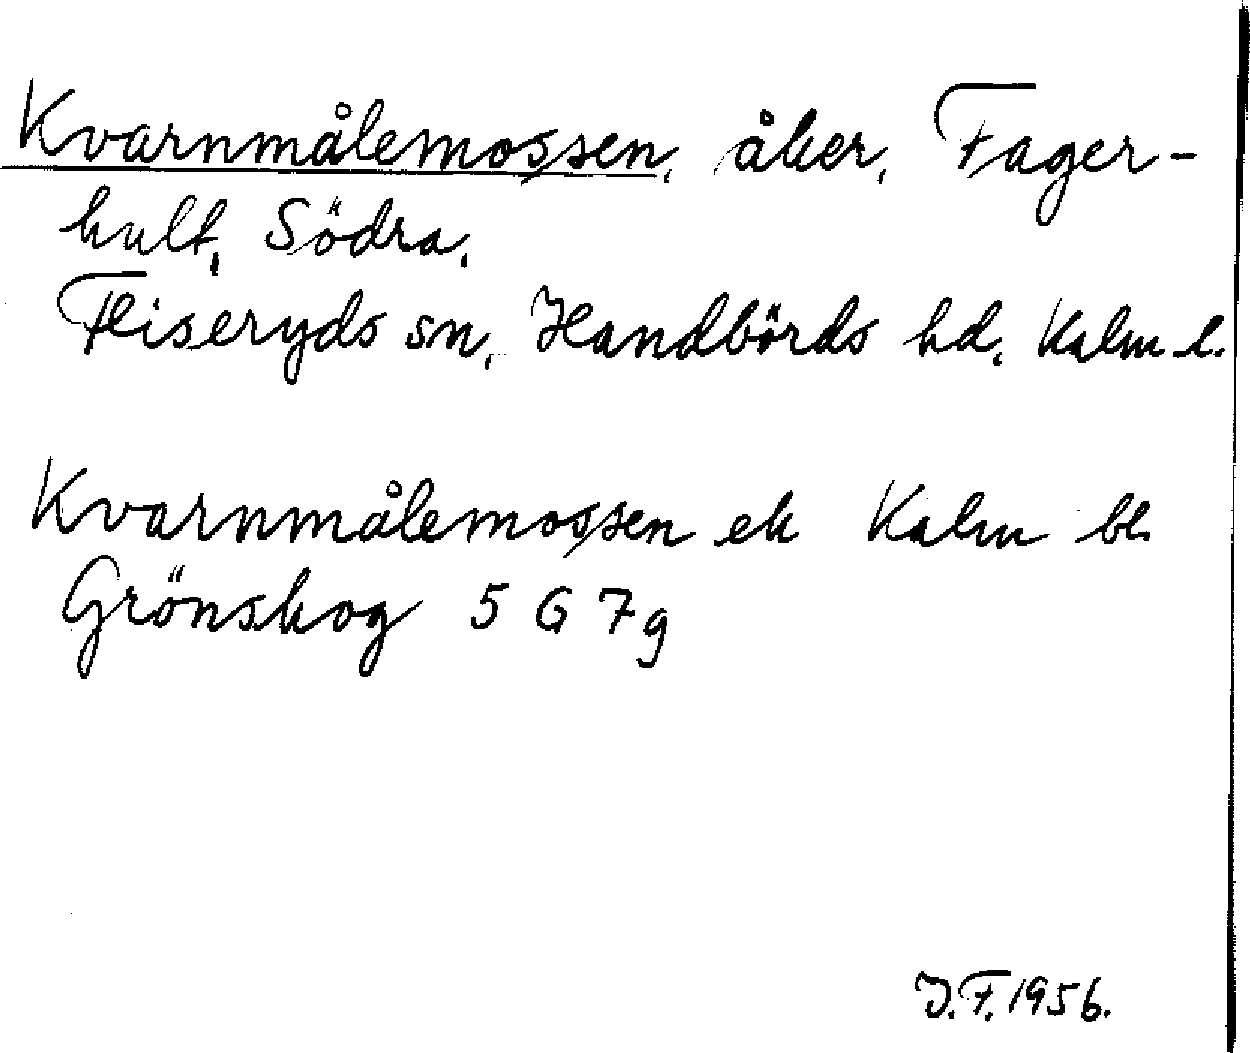 Kvarnmålemossen, åker, Fager-
hult, Södra,
Fliseryds sn, Handbörds hd, Kalm. l.
Kvarnmålemossen ek Kalm bl.
Grönskog 5 G 7g
J.F. 1956.